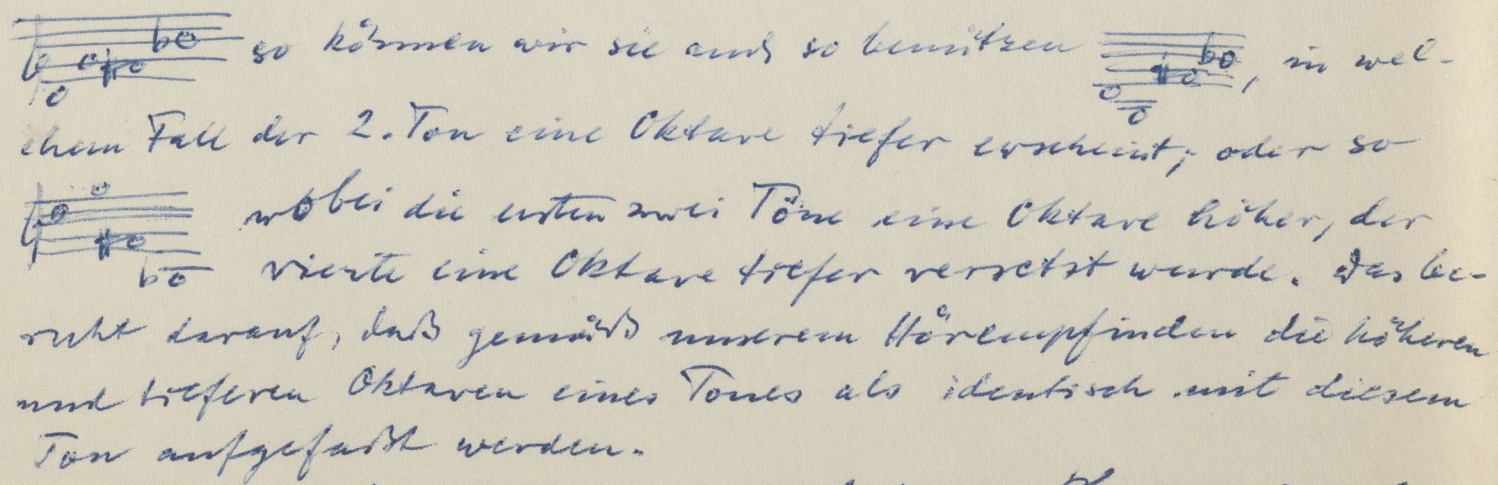 so können wir sie auch so benützen , in wel-
chem Fall der 2. Ton eine Oktave tiefer erscheint; oder so
wobei die ersten zwei Töne eine Oktave höher, der
vierte eine Oktave tiefer versetzt wurde. Das be-
ruht darauf, daß gemäß unserem Hörempfinden die höheren
und tieferen Oktaven eines Tones als identisch mit diesem
Ton aufgefaßt werden.